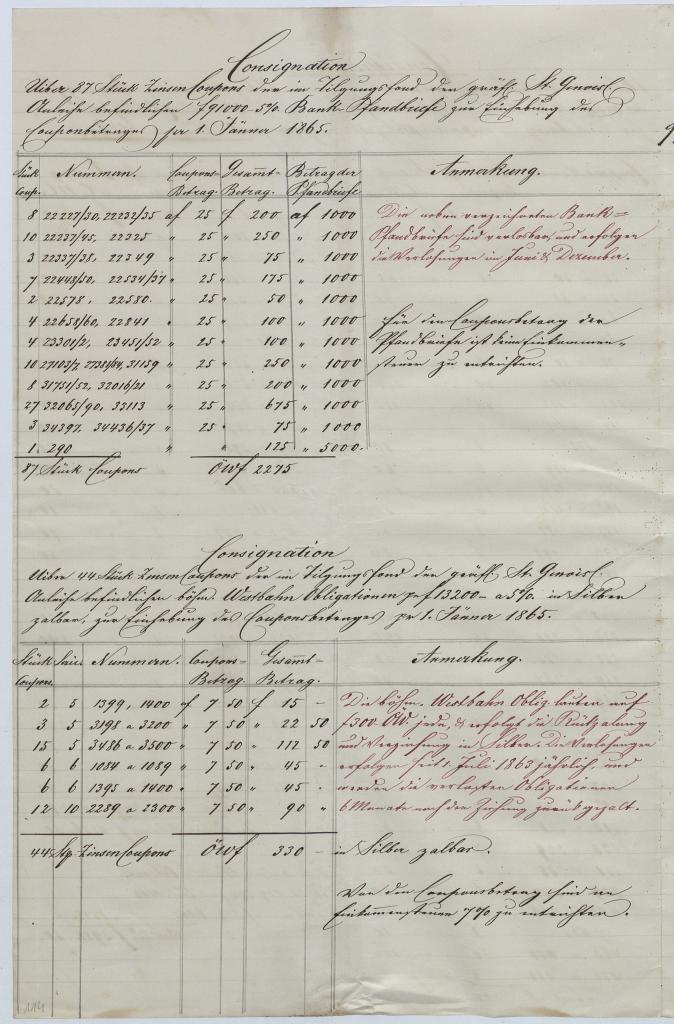 Consignation
Uiber 87 Stück Zinsen Coupons der im Tilgungsfond der gräfl. St. Genois'.
Anleihe befindlichen f 91000 5% Bank-Pfandbriefe zur Einhebung des
Couponbetrages pr 1. Jänner 1865.
Stück Coup. Nummern. Coupons-Betrag. Gesammt-Betrag. Betrag der Pfandbriefe Anmerkung.
8 22227/30, 22232/35 af 25 f 200 af 1000 Die neben verzeichneten Bank=
10 22237/45, 22325 " 25 " 250 " 1000 Pfandbriefe sind verlosbar, und erfolgen
3 22337/38, 22349 " 25 " 75 " 1000 die Verlosungen im Juni & Dezember.
7 22448/50, 22534/37 " 25 " 175 " 1000
2 22578, 22580. " 25 " 50 " 1000
4 22658/60, 22841 " 25 " 100 " 1000 Für den Couponsbetrag der
4 23301/2, 23451/52 " 25 " 100 " 1000 Pfandbriefe ist keine Einkommen=
10 27103/7, 31159 " 25 " 250 " 1000 steuer zu entrichten.
8 31751/52, 32016/21 " 25 " 200 " 1000
27 32065/90, 33113 " 25 " 675 " 1000
3 34397, 34436/37 " 25 " 75 " 1000
1 290 " " 125 " 5000.
87 Stück Coupons ÖWf 2275
Consignation
Uiber 44 Stück Zinsen Coupons der im Tilgungsfond der gräfl. St. Genois'.
Anleihe befindlichen böhm. Westbahn Obligationen pr f 13200 – a 5% in Silber
zalbar, zur Einhebung des Couponsbetrages pr 1. Jänner 1865.
Stück Coupons. Serie. Nummern. Coupons-Betrag. Gesammt-Betrag. Anmerkung.
2 5 1399, 1400 af 7 50 f 15 – Die böhm. Westbahn Oblig. lauten auf
3 5 3198 a 3200 " 7 50 " 22 50 f 300 ÖW. jede, & erfolgt die Rückzalung
15 5 3486 a 3500 " 7 50 " 112 50 und Verzinsung in Silber. Die Verlosungen
6 6 1084 a 1089 " 7 50 " 45 - erfolgen seit 1. Juli 1863 jährlich, und
6 6 1395 a 1400 " 7 50 " 45 - werden die verlosten Obligationen
12 10 2289 a 2300 " 7 50 " 90 " 6 Monate nach der Ziehung zurückgezalt.
44 Stp. Zinsen Coupons ÖWf 330 – in Silber zalbar.
Von den Couponsbetrag sind an
Einkommensteuer 7% zu entrichten.